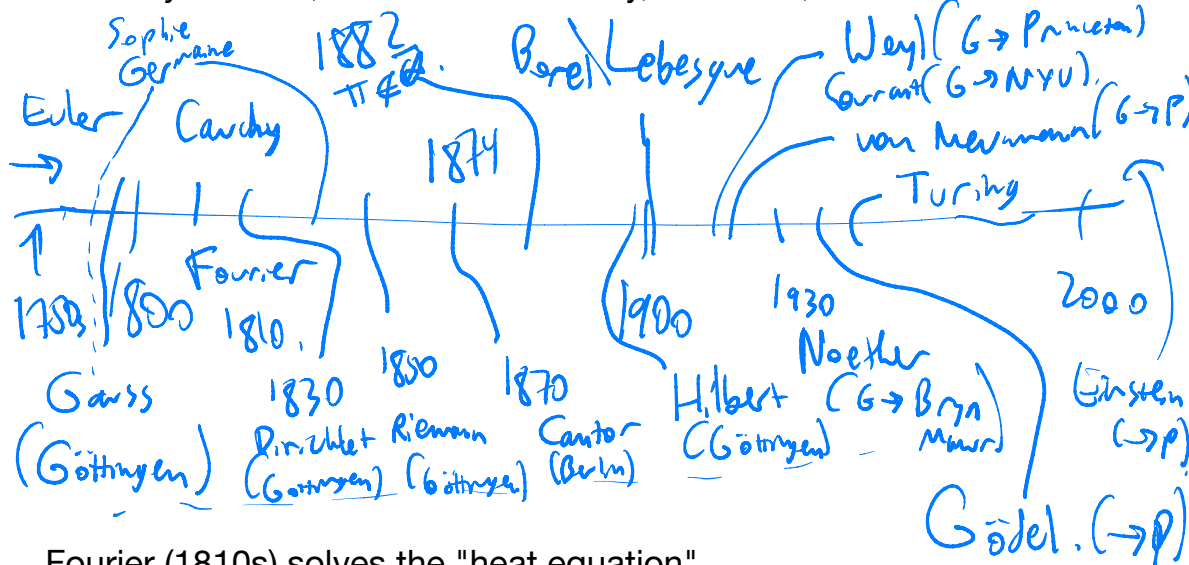 Sophie
Germaine
1882
π ∉
Borel \ Lebesgue
Weyl (G → Princeton)
Courant (G → NYU)
von Neumann (G → P)
Euler
→
Cauchy
1874
Turing
↑
1750s
1800
Fourier
1810.
1830
1850
1870
1900
1930
2000
Gauss
(Göttingen)
Dirichlet
(Göttingen)
Riemann
(Göttingen)
Cantor
(Berlin)
Hilbert
(Göttingen)
Noether
(G → Bryn
Mawr)
Einstein
(→P)
Gödel. (→P)
Fourier (1810s) solves the "heat equation"